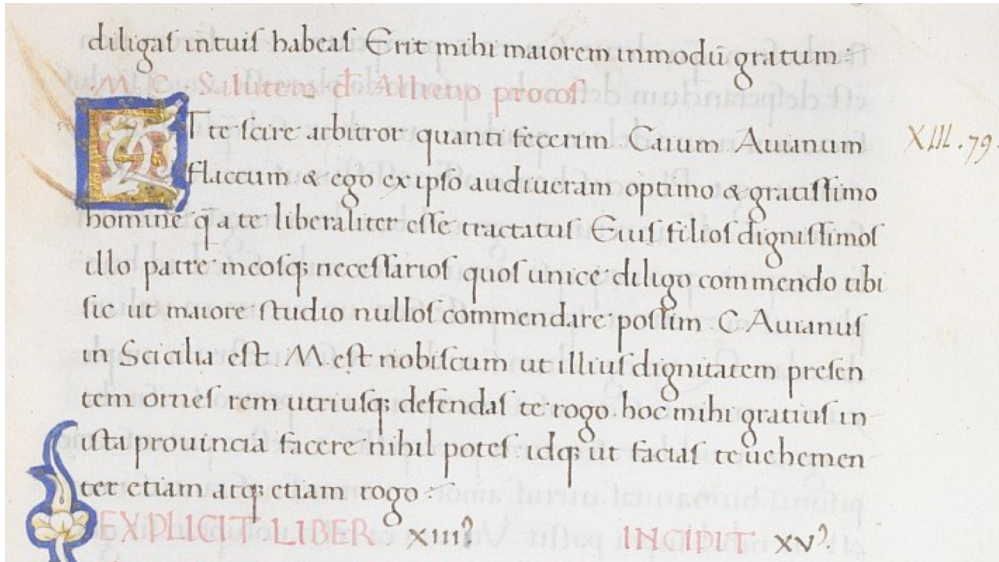 diligas in tuis habeas Erit mihi maiorem inmodū gratum :
M. C. Salutem đ Allieno procos.
ET te scire arbitror quanti fecerim Caium Auianum
XIII. 79.
flaccum & ego ex ipso audiueram optimo & gratissimo
homine q̄ a te liberaliter esse tractatus Eius filios dignissimos
illo patre meosq; necessarios quos unice diligo commendo tibi
sic ut maiore studio nullos commendare possim . C Auianus
in Scicilia est . M est nobiscum ut illius dignitatem presen
tem ornes rem utriusq; defendas te rogo . hoc mihi gratius in
ista prouincia facere nihil potes . idq; ut facias te uehemen
ter etiam atq; etiam rogo :
EXPLICIT LIBER xiii? INCIPIT xv?.